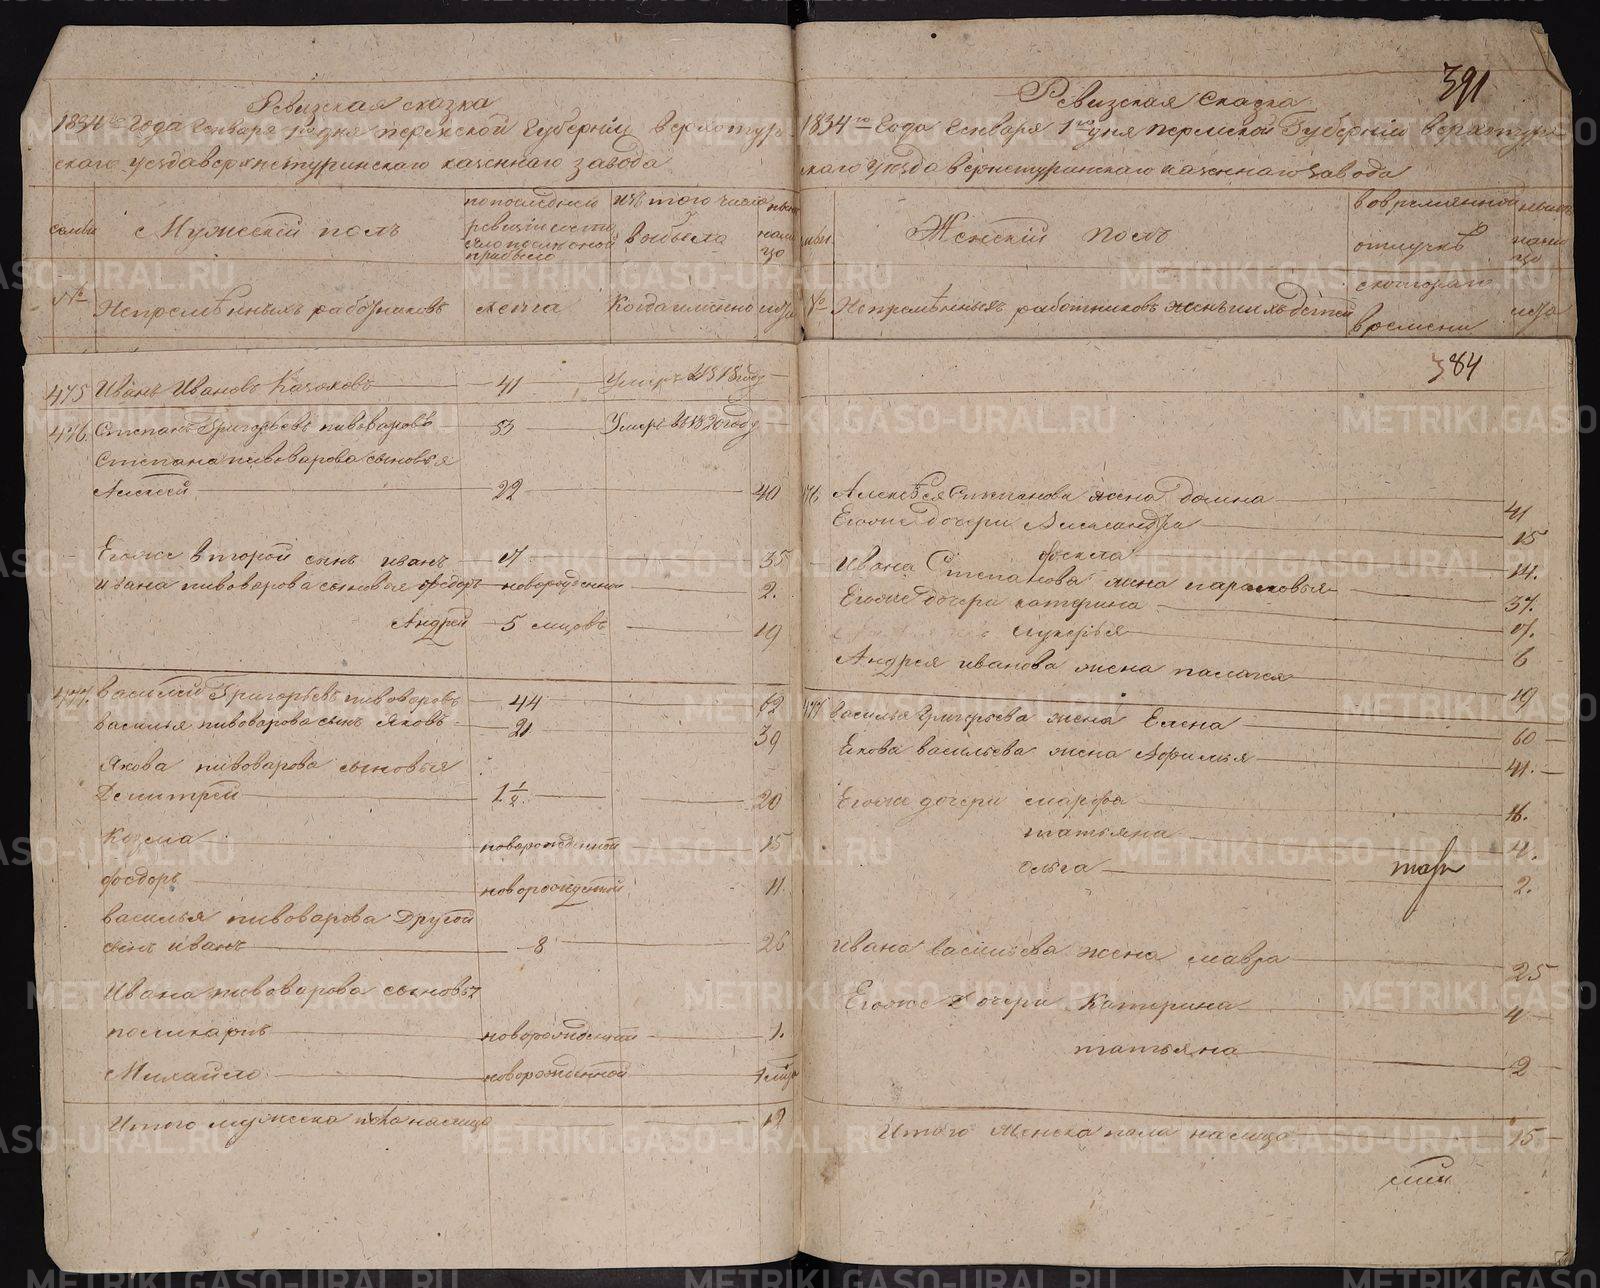 391
Ревизская сказка
1834го Года Генваря 1го дня пермской Губернии верхотур-
скаго уезда верхнетуринскаго казеннаго завода
семьи
Мужескій полъ
по последней ревизіи состояло и после оной прибыло
изъ того числа выбыло
ныне налицо
№
Непременныхъ работниковъ
лета
Когда имянно
лета
475 Иванъ Ивановъ Казаковъ 41 Умеръ в 1818 году
476 Степанъ Григорьевъ пивоваровъ 53 Умеръ въ 1820 году
Степана пивоварова сыновья
Алексей 22 40
Егоже второй сынъ иванъ 17 35
ивана пивоварова сыновья федоръ новорожденной 2.
Андрей 5 мцовъ 19
477. василий Григорьевъ пивоваровъ 44 62
василья пивоварова сынъ Яковъ 21 39
Якова пивоварова сыновья
Демитрей 1 1/2. 20
Козма новорожденной 15
федоръ новорожденной 11.
василья пивоварова Другой
сынъ иванъ 8 26
Ивана пивоварова сыновья
поликарпъ новорожденной 1.
Михайло новорожденной
Итого мужеска пола налицо 12
Ревизская Сказка
1834го Года Генваря 1го дня пермской Губернии верхотур-
скаго уезда верхнетуринскаго казеннаго завода
семьи
Женскій полъ
во временной отлучке
ныне налицо
№
Непременныхъ работниковъ жены и ихъ дети
с котораго времени
лета
384
476. Алексея Степанова жена домна 41
Егоже дочери Александра 15
фекла 14.
Ивана Степанова жена парасковья 37.
Егоже дочери катерина 17.
лукерья 6
Андрея иванова жена палагея 19
477 василья Григорьева жена Елена 60
Якова васильева жена Афимья 41.
Егоже дочери марфа 16.
татьяна 4.
ольга 2.
ивана васильева жена мавра 25
Егоже дочери Катерина 4
татьяна 2
Итого женска пола налицо 15
METRIKI.GASO-URAL.RU